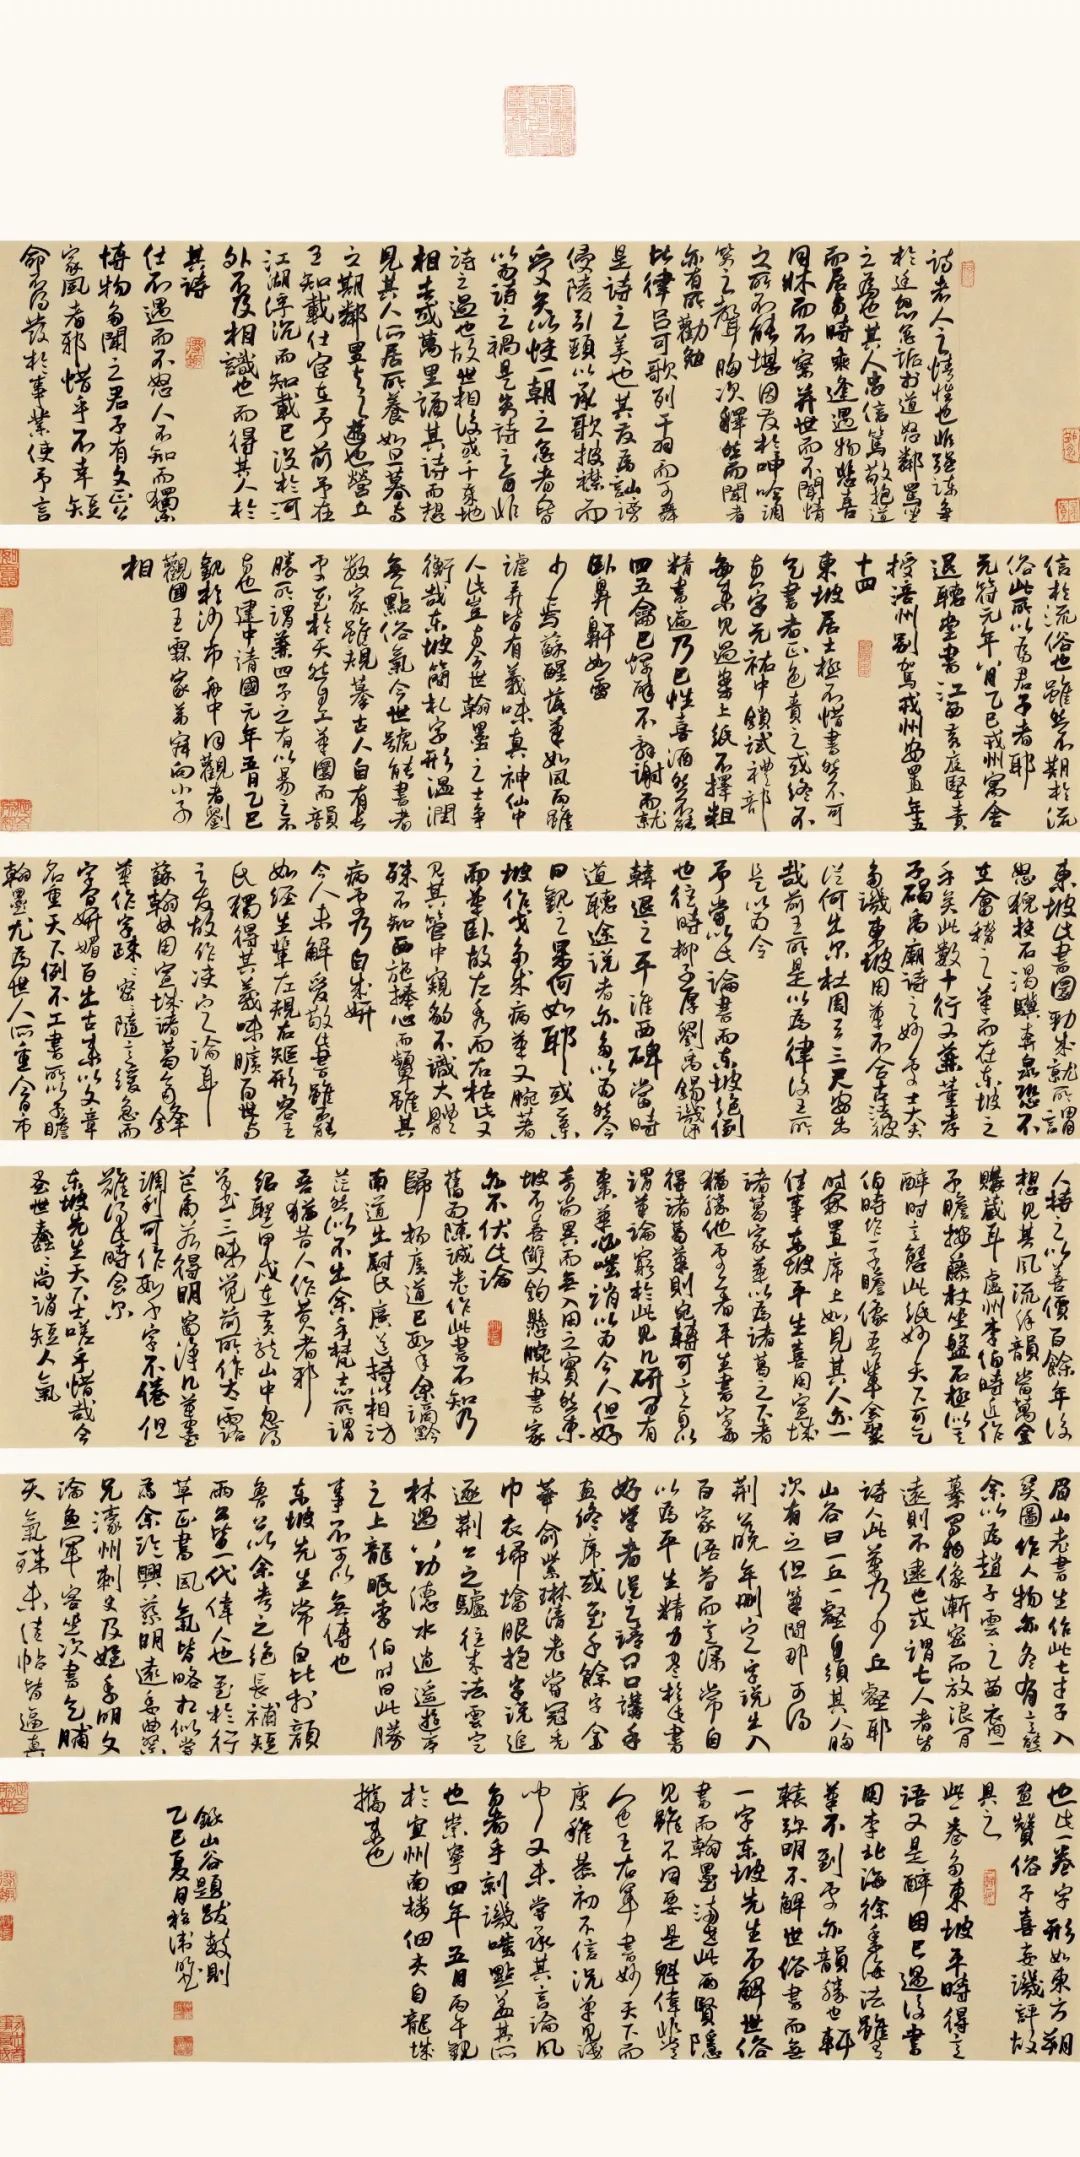 詩者人之情性也非强諫爭
於廷怨忿詬於道好鄰罵坐
之為也其人忠信篤敬抱道
而居與時乘逢遇物悲喜
同牀而不察并世而不聞情
之所不能堪因发於呻吟調
笑之聲胸次釋然而聞者
亦有所勸勉
比律吕可歌列干羽而可舞
是詩之美也其发為訕謗
侵陵引頸以承戈披襟而
受矢以快一朝之忿者人皆
以為詩之禍是失詩之旨非
詩之過也故世相後或千歲地
相去或萬里誦其詩而想
見其人所居所養如旦暮與
之期鄰里與之遊也營丘
王知載仕宦在予前予在
江湖浮沉而知載已没於河
外不及相識也而得其人於
其詩
仕不遇而不怒人不知而獨樂
博物多聞之君子有文正公
家風者邪惜乎不幸短
命不得发於事業使予言
信於流俗也雖然不期於流
俗此所以為君子者耶
元符元年八月乙巳戎州寓舍
退聽堂書江西黄庭堅責
授涪州别駕戎州安置年五
十四
東坡居士極不惜書然不可
乞書者正色責之或終不
與一字元祐中鎖試禮部
每來見過案上紙不擇粗
精書遍乃已性喜酒然不能
四五龠已爛醉不辭謝而就
卧鼻鼾如雷
少焉蘇醒落筆如風雨雖
謔弄皆有義味真神仙中
人此豈與今世翰墨之士爭
衡哉東坡簡札字形温潤
無點俗氣今世號能書者
數家雖規摹古人自有長
處至於天然自工筆圓而韻
勝所謂兼四子之有以易之不
與也建中靖國元年五月乙巳
觀於沙市舟中同觀者劉
觀國王霖家弟寐向小子
相
東坡此書圓勁成就所謂
怒猊抉石渴驥奔泉恐不
在會稽之筆而在東坡之
手矣此數十行又兼董孝
子碣禹廟詩之妙處士大夫
多譏東坡用筆不合古法彼
從何出尔杜周云三尺安出
哉前王所是以為律後王所
是以為令
予嘗以此論書而東坡絕倒
也往時柳子厚劉禹錫譏評
韓退之平淮西碑當時
道聽途說者亦多以為然今
日觀之果何如耶或云
坡作戈多成病筆又腕著
而筆卧故左秀而右枯此又
見其管中窺豹不識大體
殊不知西施捧心而顰雖其
病處乃自成妍
今人未解愛敬此書雖然
如經生輩左規右矩形容王
氏獨得其義味曠百世與
之友故作决定論耳
蘇翰林用宣城諸葛齊鋒
筆作字疎疎密密隨意緩急而
字間妍媚百出古來以文章
名重天下例不工書所以子瞻
翰墨尤為世人所重今日市
人持之以善價百餘年後
想見其風流餘韻當萬金
購藏耳廬州李伯時近作
子瞻按藤杖坐盤石極似其
醉時意態此紙妙天下可乞
伯時作子瞻像吾輩會聚
時開置席上如見其人亦一
佳事東坡平生喜用宣城
諸葛家筆以為諸葛之下者
猶勝他處工者平生書字每
得諸葛筆則宛轉可意自以
謂筆論窮於此見几研間有
棗核筆必嗤誚以為今人但好
奇尚異而無入用之實然東
坡不善雙鈎懸腕故書家
亦不伏此論
舊為陳誠老作此書不知乃
歸楊廣道已數年余謫黔
南道出尉氏廣道持以相訪
茫然似不出余手梵志所謂
吾猶昔人非昔人者邪
紹聖甲戌在黄龍山中忽得
草書三昧覺前所作太露
芒角若得明窗淨几筆墨
調利可作數千字不倦但
難得此時會尔
東坡先生天下士嗟乎惜哉今
聖世蠢蠢尚誚短人氣
眉山老書生作此七才子入
關圖作人物亦各有意態
余以為趙子雲之苗裔一
摹寫物像漸密而放浪閒
遠則不逮也或謂七人者皆
詩人此筆乃少丘壑耶
山谷曰一丘一壑自須其人胸
次有之但筆間那可得
荆公晚年刪定字說出入
百家語簡而意深常自
以為平生精力盡於此書
好學者從之請問口講手
畫終席或至千餘字金
華俞紫琳清老嘗冠禿
巾衣掃塔服抱字說追
逐荆公之驢往來法雲定
林過八功德水逍遥遊亭
之上龍眠李伯時曰此勝
事不可以無傳也
東坡先生常自比於顏
魯公以余考之絕長補短
兩公皆一代偉人也至於行
草正書風氣皆略相似嘗
為余臨與蔡明遠委曲祭
兄濠州刺史及姪季明文
論魚軍容坐次書乞脯
天氣殊未佳帖皆逼真
也此一卷字形如東方朔
畫贊俗子喜妄譏評故
具之
此一卷多東坡平時得意
語又是醉困已過後書
用李北海徐季海法雖有
筆不到處亦韻勝也軒
轅彌明不解世俗書而無
一字東坡先生不解世俗
書而翰墨滿世此兩賢隱
見雖不同要是魁偉非常
人也王右軍書妙天下而
庾稚恭初不信況單見淺
聞又未嘗承其言論風
旨者乎刻譏嗤點蓋其所
也崇寧四年五月丙午觀
於宜州南樓佃夫自龍城
攜來也
錄山谷題跋數則
乙巳夏月